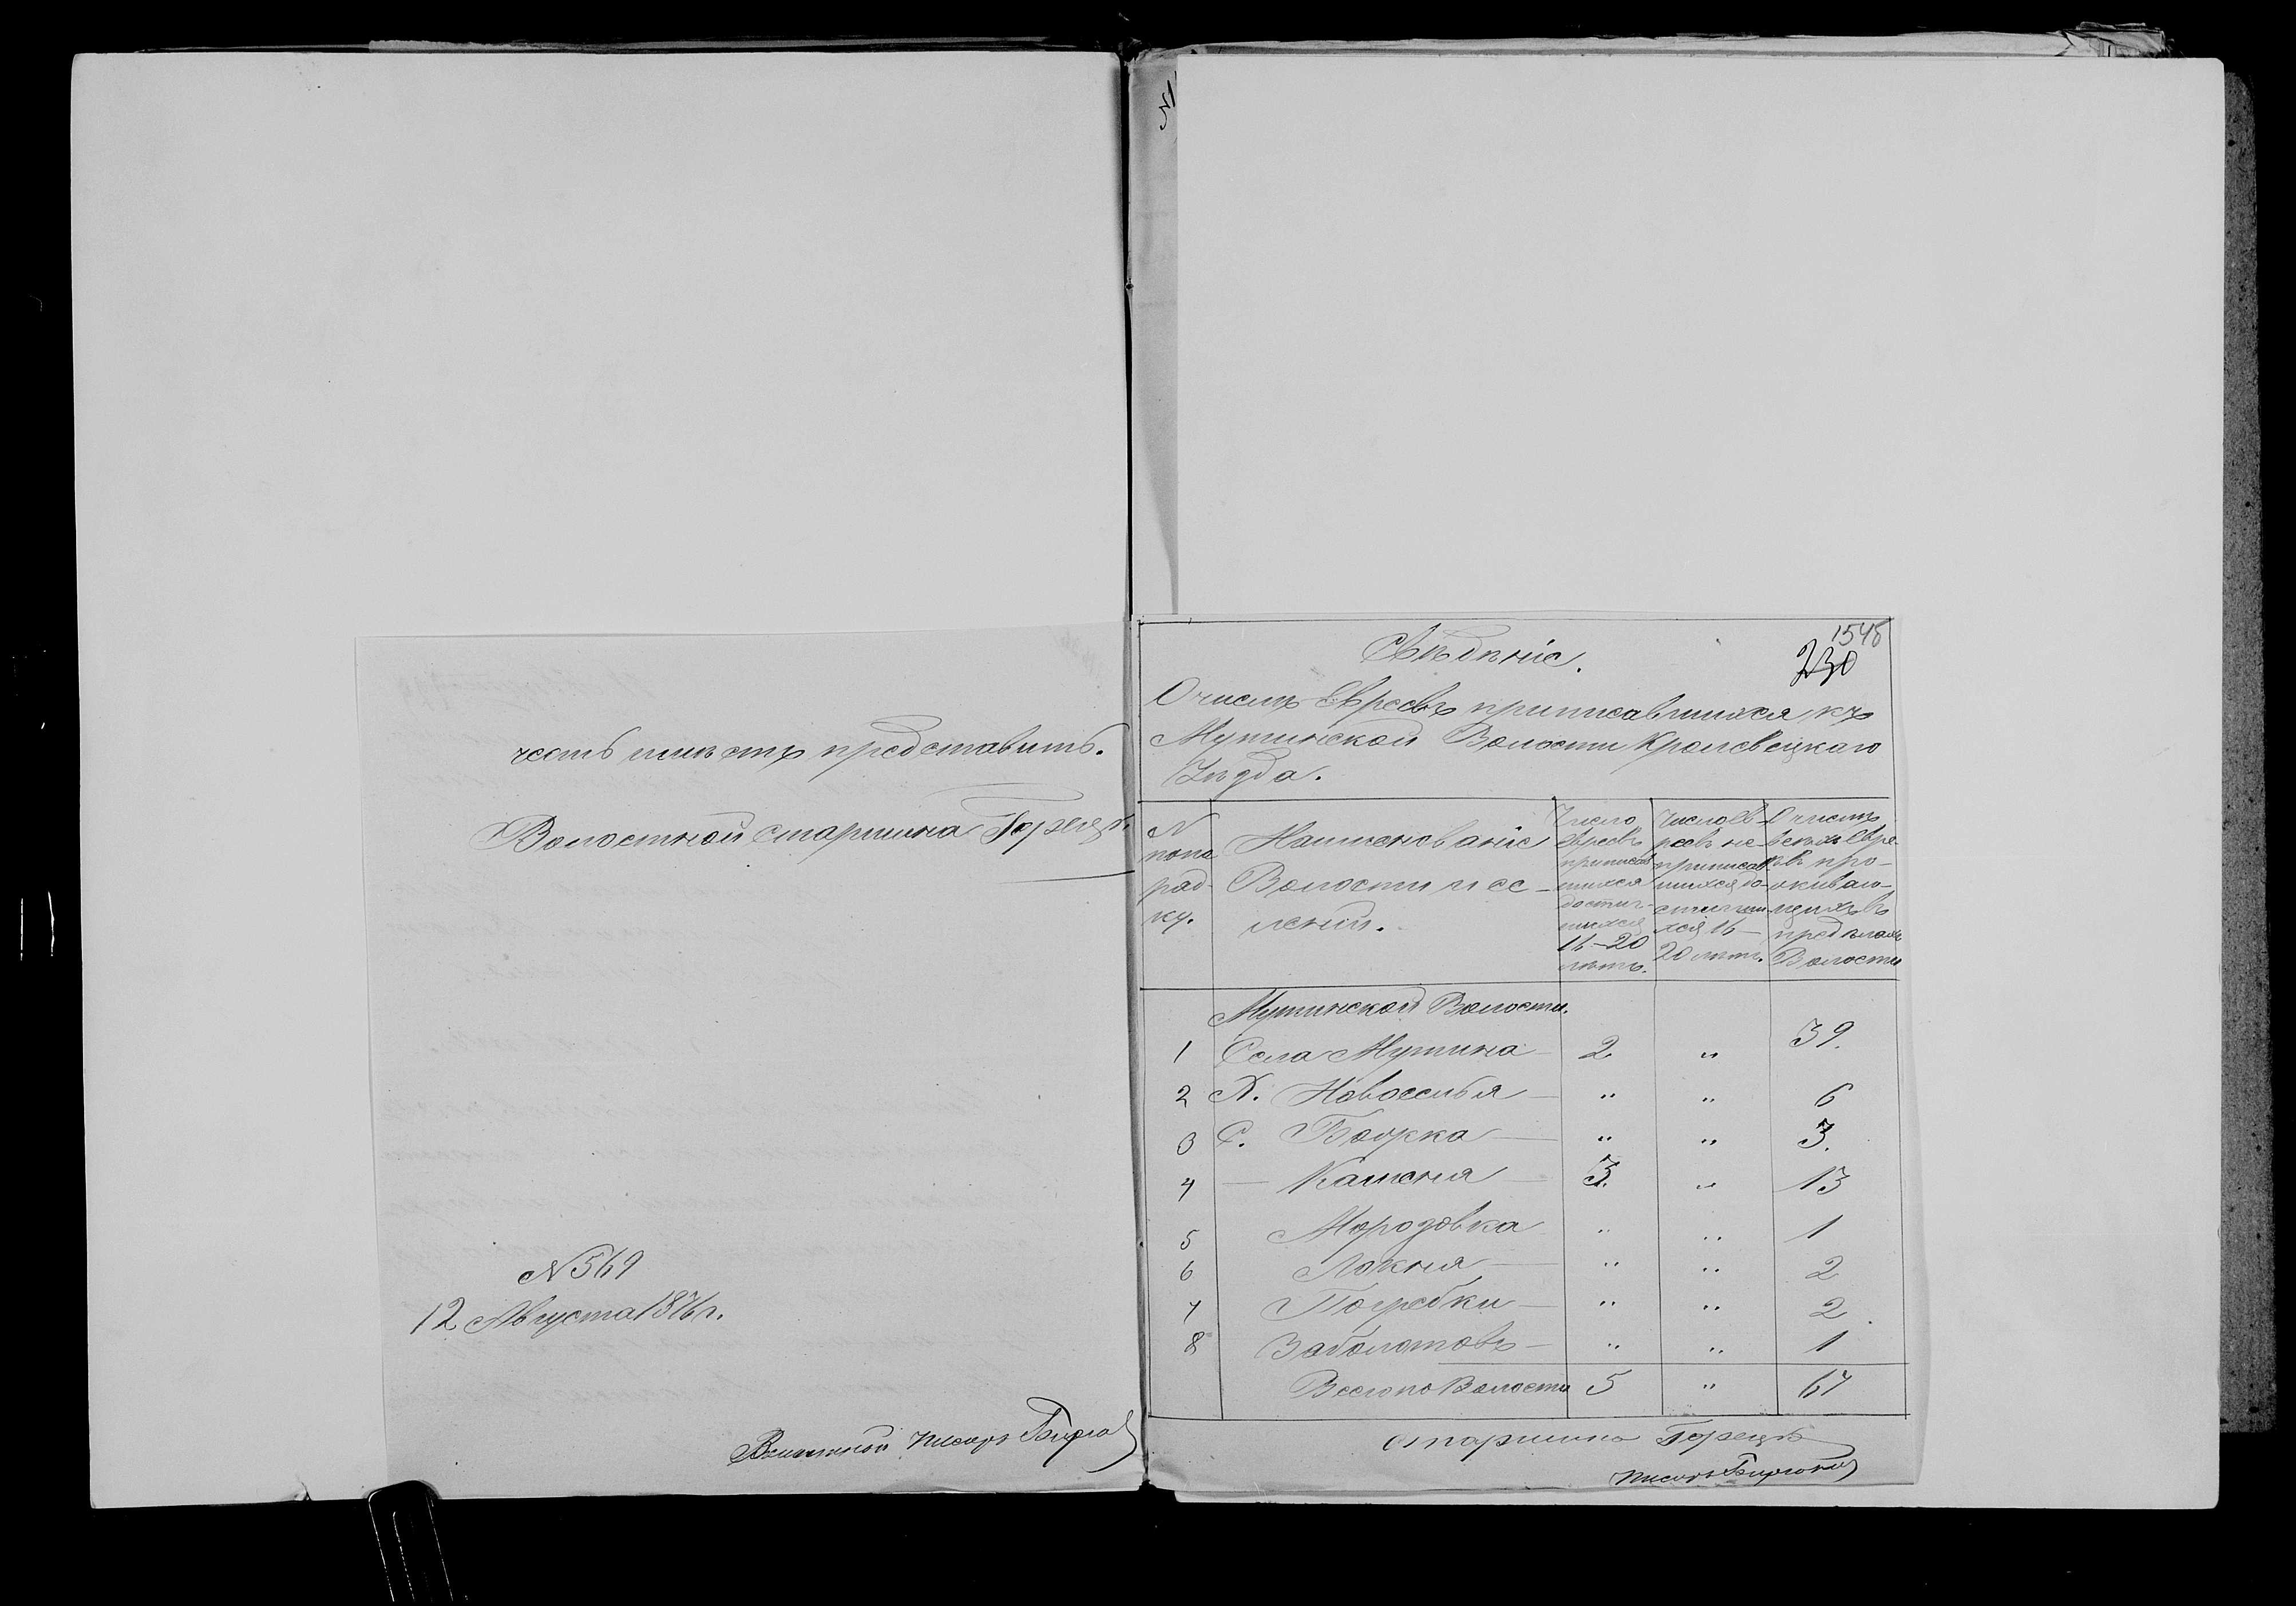 честь имѣетъ представить.
Волостной старшина Горецъ
№ 569
12 Августа 1876 г.
Волостной писарь
1548
230
Свѣдѣніе.
О числѣ Евреевъ приписавшихся къ
Мутинской Волости Кролевецкаго
Уѣзда.
N
попо
ряд
ку.
Наименованіе
Волости и се-
леній.
Число
Евреевъ
приписав
шихся
достиг-
шихся
16-20
лѣтъ.
Число Ев-
реевъ не-
приписав
шихся до-
стигши
хся 16-
20 лѣтъ.
О числѣ
всѣхъ Евре-
евъ про-
живаю-
щихъ въ
предѣлахъ
Волости
Мутинской Волости.
1 Села Мутина 2. " 39.
2 Х. Новоселья " " 6
3 С. Боярка " " 3.
4 — Каменя 3. " 13
5 Морозовка " " 1
6 Локня " " 2
7 Погребки " " 2
8 Заболотовъ " " 1
Всего по Волости 5 " 67
Старшина Горецъ
Писарь